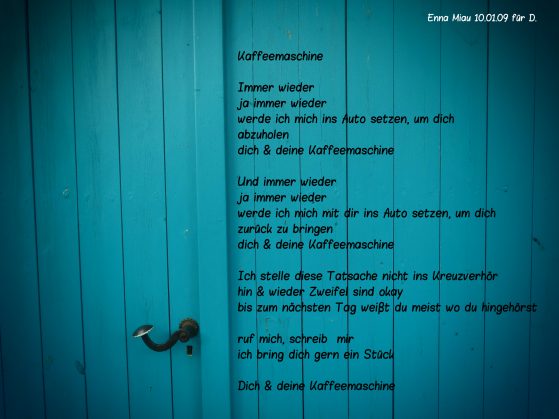 Enna Miau 10.01.09 für D.
Kaffeemaschine
Immer wieder
ja immer wieder
werde ich mich ins Auto setzen, um dich
abzuholen
dich & deine Kaffeemaschine
Und immer wieder
ja immer wieder
werde ich mich mit dir ins Auto setzen, um dich
zurück zu bringen
dich & deine Kaffeemaschine
Ich stelle diese Tatsache nicht ins Kreuzverhör
hin & wieder Zweifel sind okay
bis zum nächsten Tag weißt du meist wo du hingehörst
ruf mich, schreib mir
ich bring dich gern ein Stück
Dich & deine Kaffeemaschine